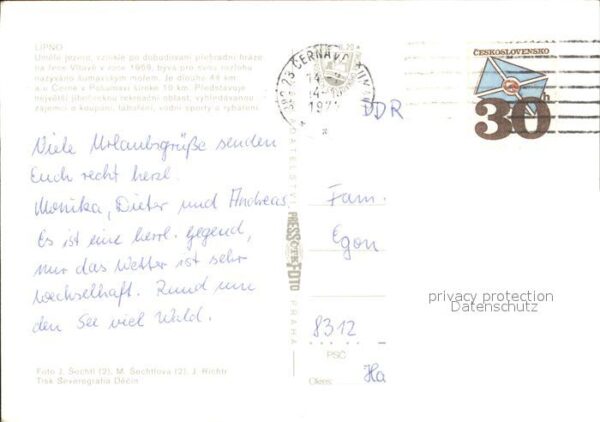 LIPNO
Umělé jezero, vzniklé po dobudování přehradní hráze
na řece Vltavě v roce 1959, bývá pro svou rozlohu
nazýváno šumavským mořem. Je dlouhé 44 km
a u Černé v Pošumaví široké 10 km. Představuje
největší jihočeskou rekreační oblast, vyhledávanou
zájemci o koupání, táboření, vodní sporty a rybaření.
Viele Urlaubsgrüße senden
Euch recht herzl.
Monika, Dieter und Andreas.
Es ist eine herrl. Gegend,
nur das Wetter ist sehr
wechselhaft. Rund um
den See viel Wald.
Foto J. Šechtl (2), M. Šechtlová (2), J. Richtr
Tisk Severografia Děčín
PRESSFOTO
PRAHA
ČERNÁ V POŠUMAVÍ
ČESKOSLOVENSKO
30h
DDR
Fam.
Egon
8312
PSČ
Okres:
Ha
privacy protection
Datenschutz